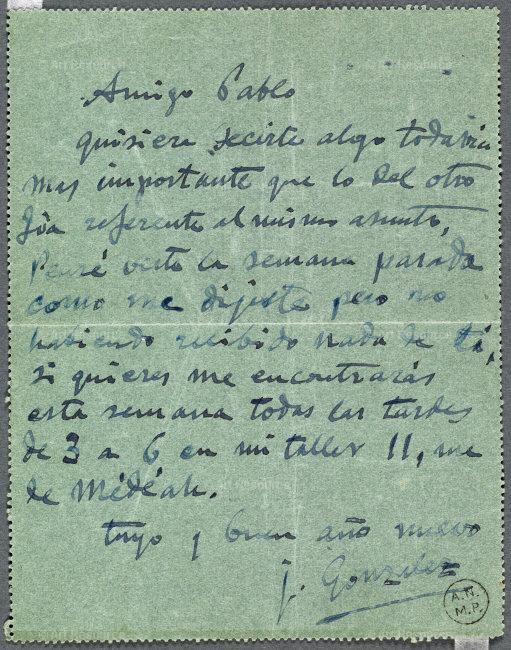 Amigo Pablo
quisiera decirte algo todavia
mas importante que lo del otro
dia referente al mismo asunto,
Pensé verte la semana pasada
como me dijiste pero no
habiendo recibido nada de tí,
si quieres me encontrarás
esta semana todas las tardes
de 3 a 6 en mi taller 11, rue
de Médéah.
tuyo y buen año nuevo
j. Gonzalez
A.N.
M.P.